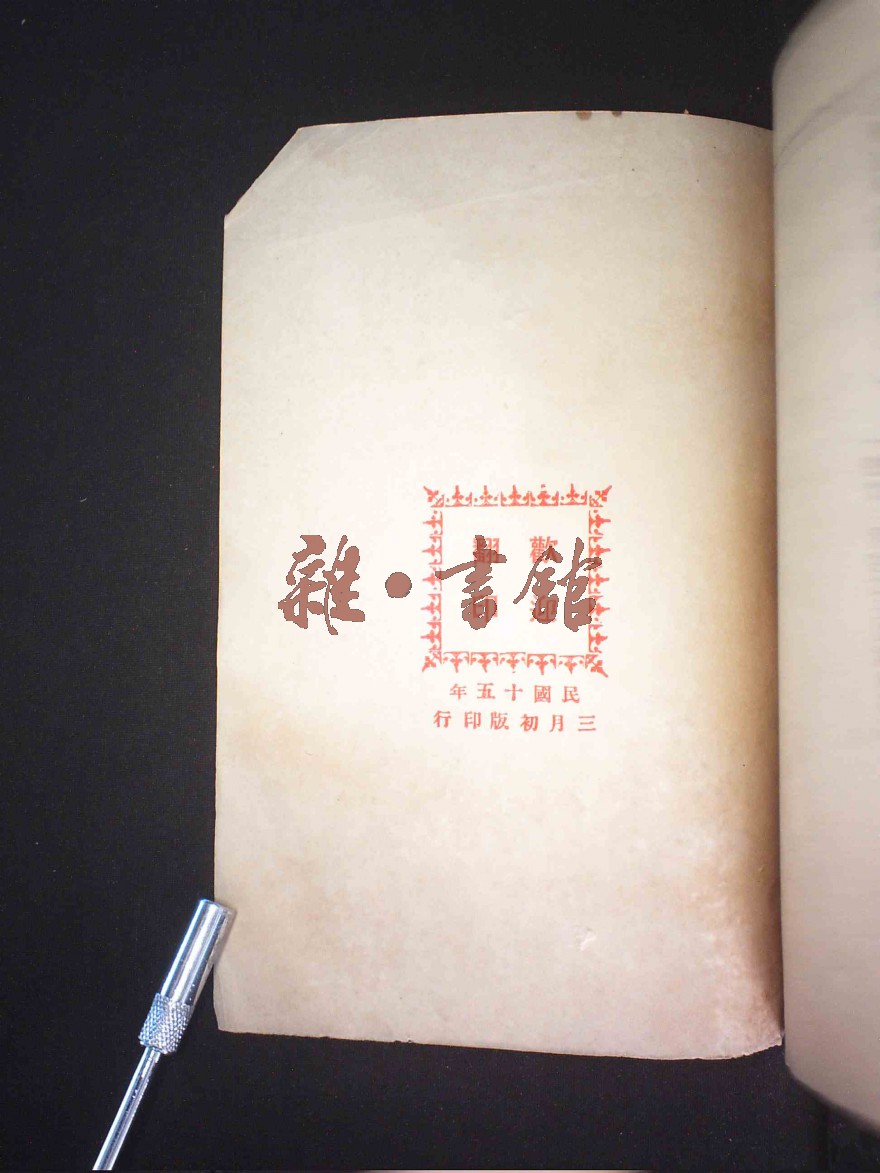 歡迎
翻印
雜·書館
民國十五年
三月初版印行